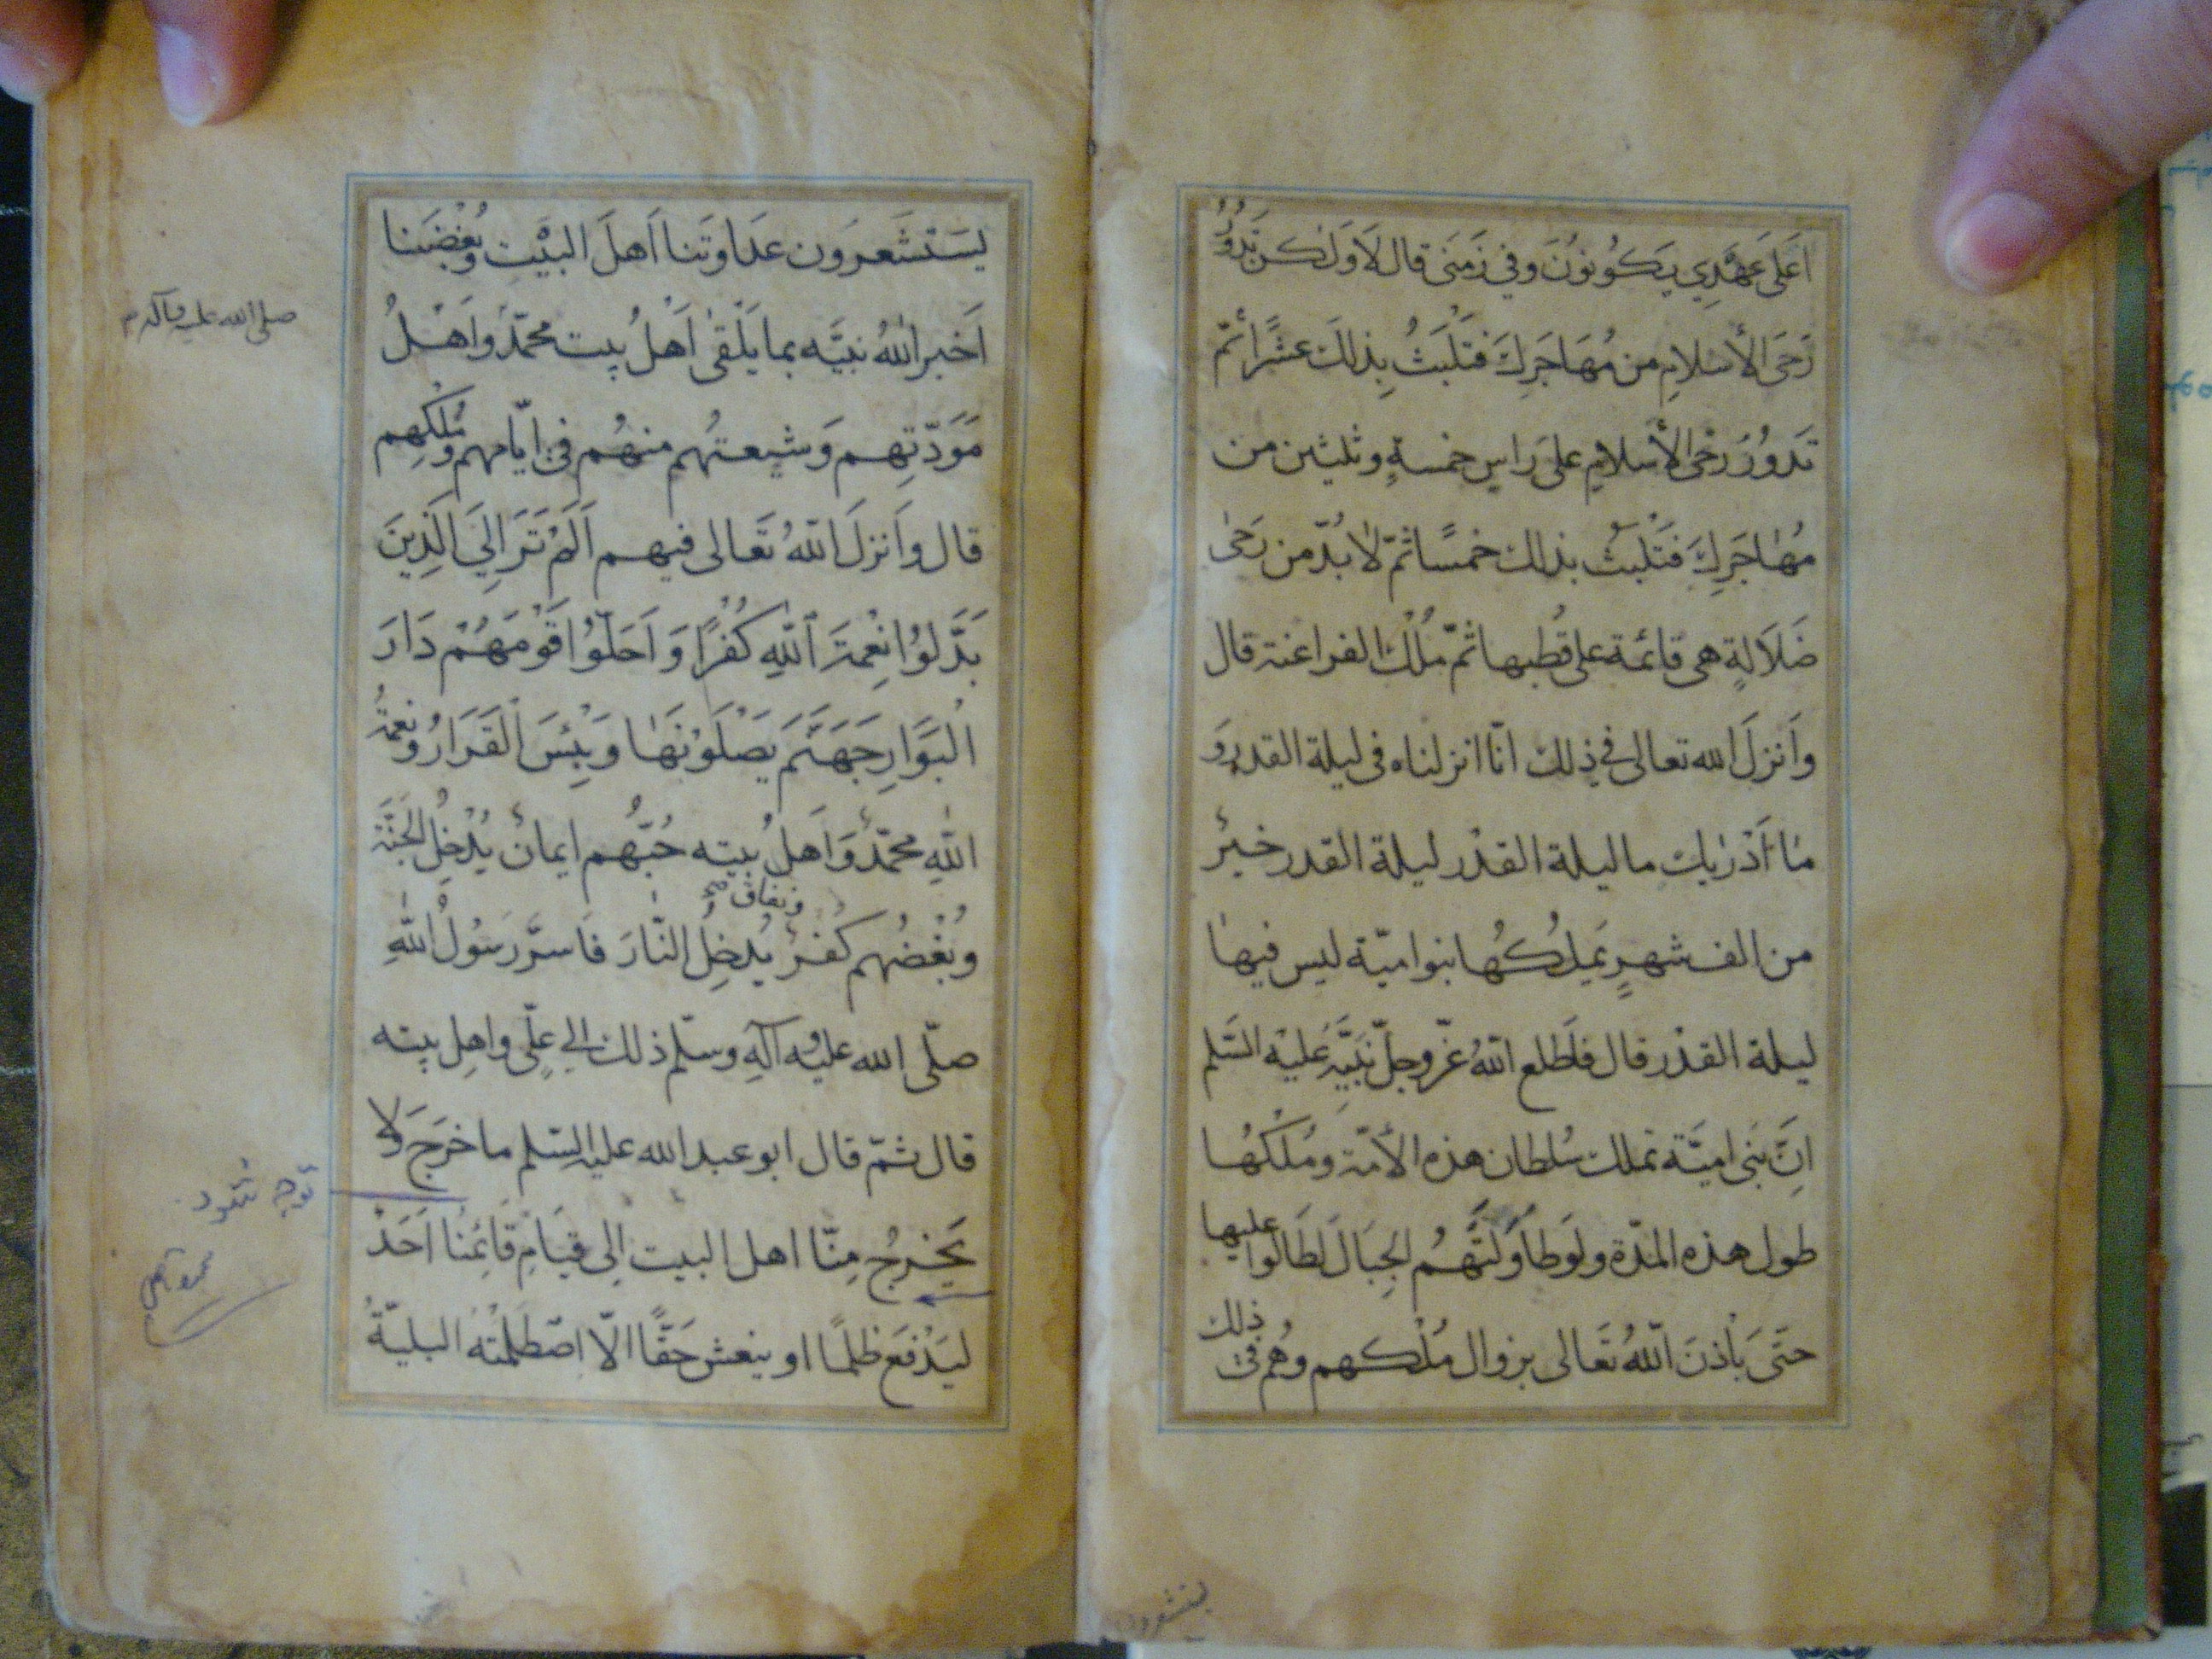 اَعَلىٰ عَهْدِي يَكُونُونَ وَفي زَمَنى قال لاَ وَلٰكن تَدُورُ
رَحَى الأسْلامِ من مُهَاجَرِكَ فَتَلْبَثُ بِذلكَ عَشْرًا ثُمّ
تَدوُرُ رَحَى الأسْلامِ على رَاسِ خمسةٍ وثلثين من
مُهٰاجَرِكَ فَتَلْبَثُ بذلك خمسًا ثمّ لاٰبُدّ من رَحىٰ
ضَلاَلةٍ هى قائمة على قُطبها ثمّ مُلْكُ الفراعنة قال
وَاَنزلَ الله تعالى في ذلك انّا انزلناه فى ليلة القدر وَ
مٰا اَدْرٰيك ما ليلة القدْر ليلة القدر خيرٌ
من الف شهرٍ يَملِكُهَا بنوا ميّة ليس فيهٰا
ليلة القدْر قال فَاَطلع اللهُ عَزّوجلّ نَبيَّهُ عَليْه السّلم
اِنَّ بَنى اميَّة تملك سُلطان هذه الأمّة وَمُلْكَهُا
طول هذه المدّة ولو طاوَلَتْهُمُ الجِبَالُ لَطَالُوا عليها
حتّى يَأذنَ اللهُ تَعَالى بزوال مُلْكهم وهُم فى ذلك
يستشعرون
يسَتشَعرَون عدَاوتَنا اَهلَ البيْتِ وَبُغضَنا
اَخبر اللهُ نبيَّه بما يَلْقىٰ اَهْلُ بيت محمّدٍ وَاَهْلُ
صلى الله عليه وآله
مَوَدّتِهم وَشيعتهُم منهُم فى ايّامهم وَمُلْكِهم
قال وَاَنزلَ اللهُ تَعَالى فيهم اَلَمْ تَرَ اِلَي الَّذِينَ
بَدَّلوُا نِعْمَةَ اللهِ كُفْرًا وَ اَحَلّوُا قَوْمَهُمْ دَارَ
الْبَوَارِ جَهَنَّمَ يَصْلَوْنَهٰا وَبِئسَ الْقَرَارُ وَنِعمةُ
اللهِ محمّدٌ وَاَهلُ بيته حُبّهُم ايمانٌ يُدْخِلُ الجَنَّة
وَبُغْضُهم كُفرٌ ونفاق صح يُدخِلُ النّٰارَ فاَسرَّ رَسُولُ اللهِ
صلّى الله عليْه وآلهِ وسلّم ذلك الي عليٍّ واهلِ بيته
قال ثمّ قال ابو عبدالله عليه السّلم ما خَرَجَ وَلا
يَخرجُ مِنّا اهل البيت اِلى قِيَامِ قَائمِنَا اَحَدٌ
ليَدْفَعَ ظلمًا او ينعش حَقًّا الّا اصْطَلَمَتْهُ البليّةُ